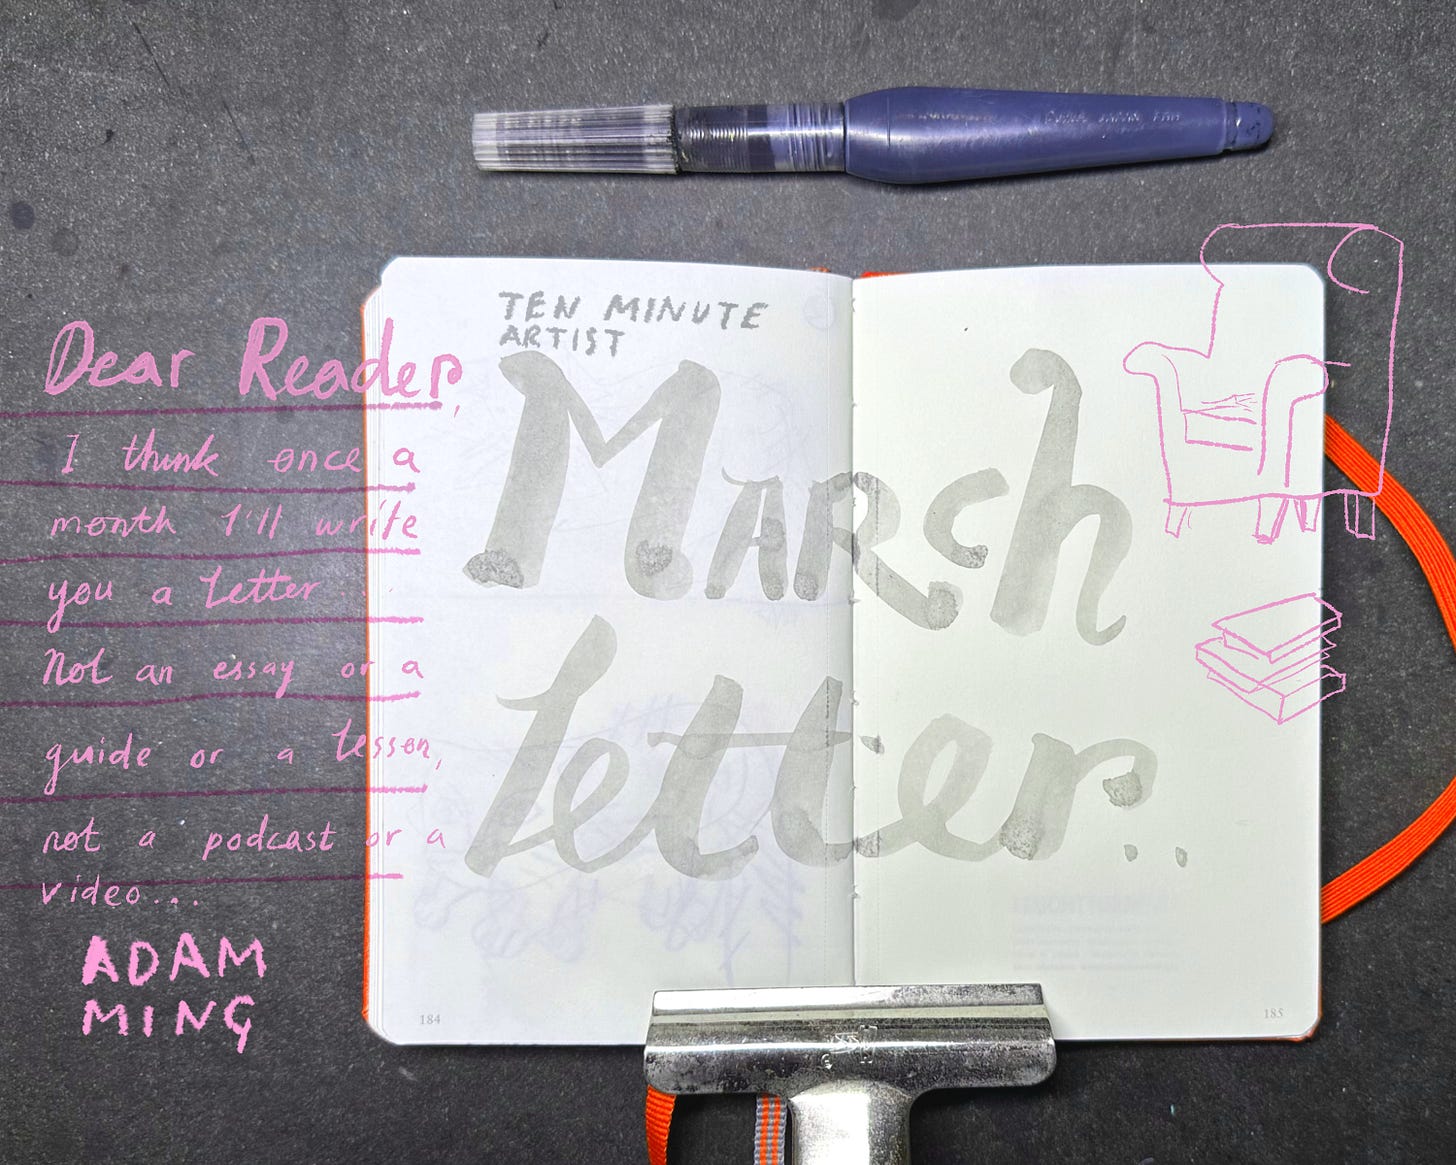 TEN MINUTE
ARTIST
March
letter..
Dear Reader,
I think once a
month I'll write
you a letter
Not an essay or a
guide or a lesson,
not a podcast or a
video...
ADAM
MING
184
185